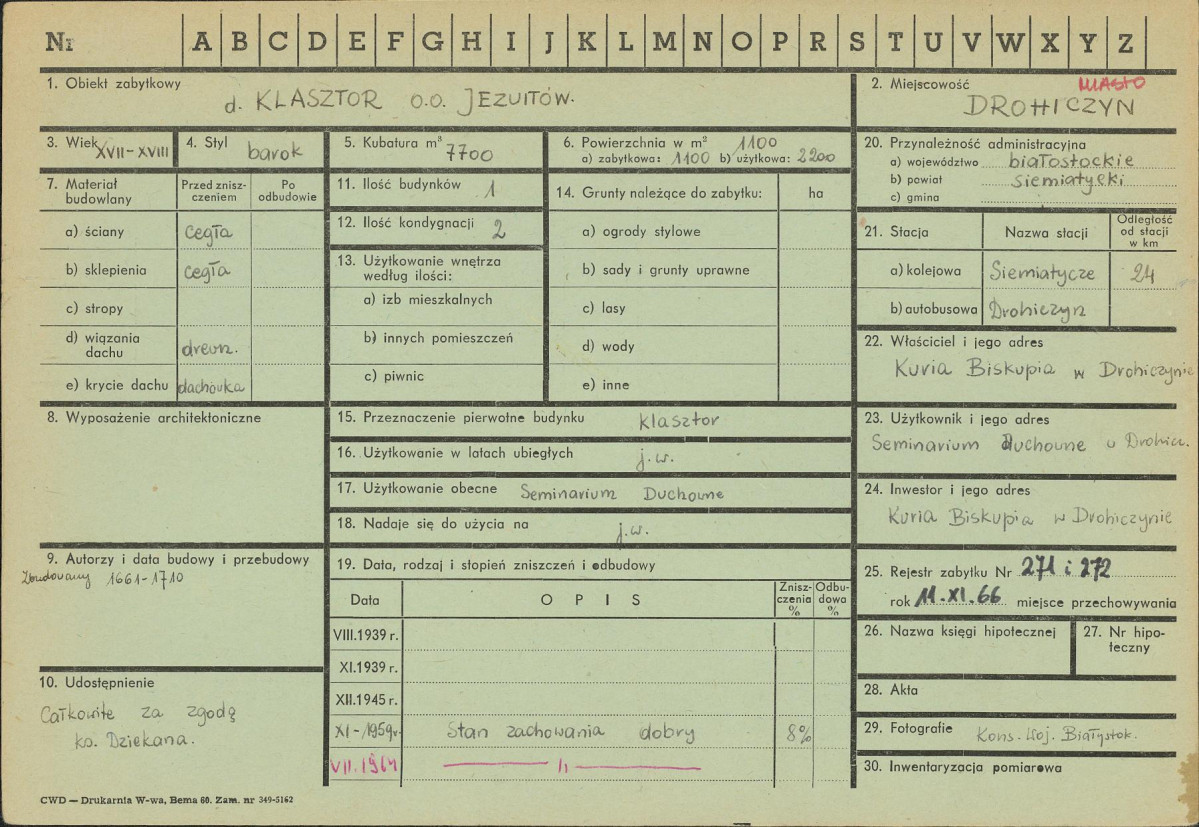 Nr A B C D E F G H I J K L M N O P R S T U V W X Y Z
1. Obiekt zabytkowy
d. KLASZTOR O.O. JEZUITÓW.
2. Miejscowość MIASTO
DROHICZYN
3. Wiek XVII-XVIII
4. Styl barok
5. Kubatura m³ 7700
6. Powierzchnia w m² 1100
a) zabytkowa: 1100 b) użytkowa: 2200
20. Przynależność administracyjna
a) województwo białostockie
b) powiat siemiatycki
c) gmina
7. Materiał budowlany
Przed znisz-
czeniem
Po
odbudowie
a) ściany cegła
b) sklepienia cegła
c) stropy
d) wiązania
dachu drewn.
e) krycie dachu dachówka
11. Ilość budynków 1
12. Ilość kondygnacji 2
13. Użytkowanie wnętrza
według ilości:
a) izb mieszkalnych
b) innych pomieszczeń
c) piwnic
14. Grunty należące do zabytku: ha
a) ogrody stylowe
b) sady i grunty uprawne
c) lasy
d) wody
e) inne
21. Stacja Nazwa stacji
Odległość
od stacji
w km
a) kolejowa Siemiatycze 24
b) autobusowa Drohiczyn
22. Właściciel i jego adres
Kuria Biskupia w Drohiczynie
8. Wyposażenie architektoniczne
15. Przeznaczenie pierwotne budynku klasztor
16. Użytkowanie w latach ubiegłych j.w.
17. Użytkowanie obecne Seminarium Duchowne
18. Nadaje się do użycia na j.w.
23. Użytkownik i jego adres
Seminarium Duchowne w Drohicz.
24. Inwestor i jego adres
Kuria Biskupia w Drohiczynie
9. Autorzy i data budowy i przebudowy
Zbudowany 1661-1710
19. Data, rodzaj i stopień zniszczeń i odbudowy
Data OPIS
Znisz-
czenia
%
Odbu-
dowa
%
VIII.1939 r.
XI.1939 r.
XII.1945 r.
XI-1959r. Stan zachowania dobry 8%
VII.1964 — 11 —
25. Rejestr zabytku Nr 271 i 272
rok 11.XI.66 miejsce przechowywania
26. Nazwa księgi hipotecznej
27. Nr hipo-
teczny
10. Udostępnienie
Całkowite za zgodą
ks. Dziekana.
28. Akta
29. Fotografie Kons. Woj. Białystok.
30. Inwentaryzacja pomiarowa
CWD — Drukarnia W-wa, Bema 60. Zam. nr 349-5162